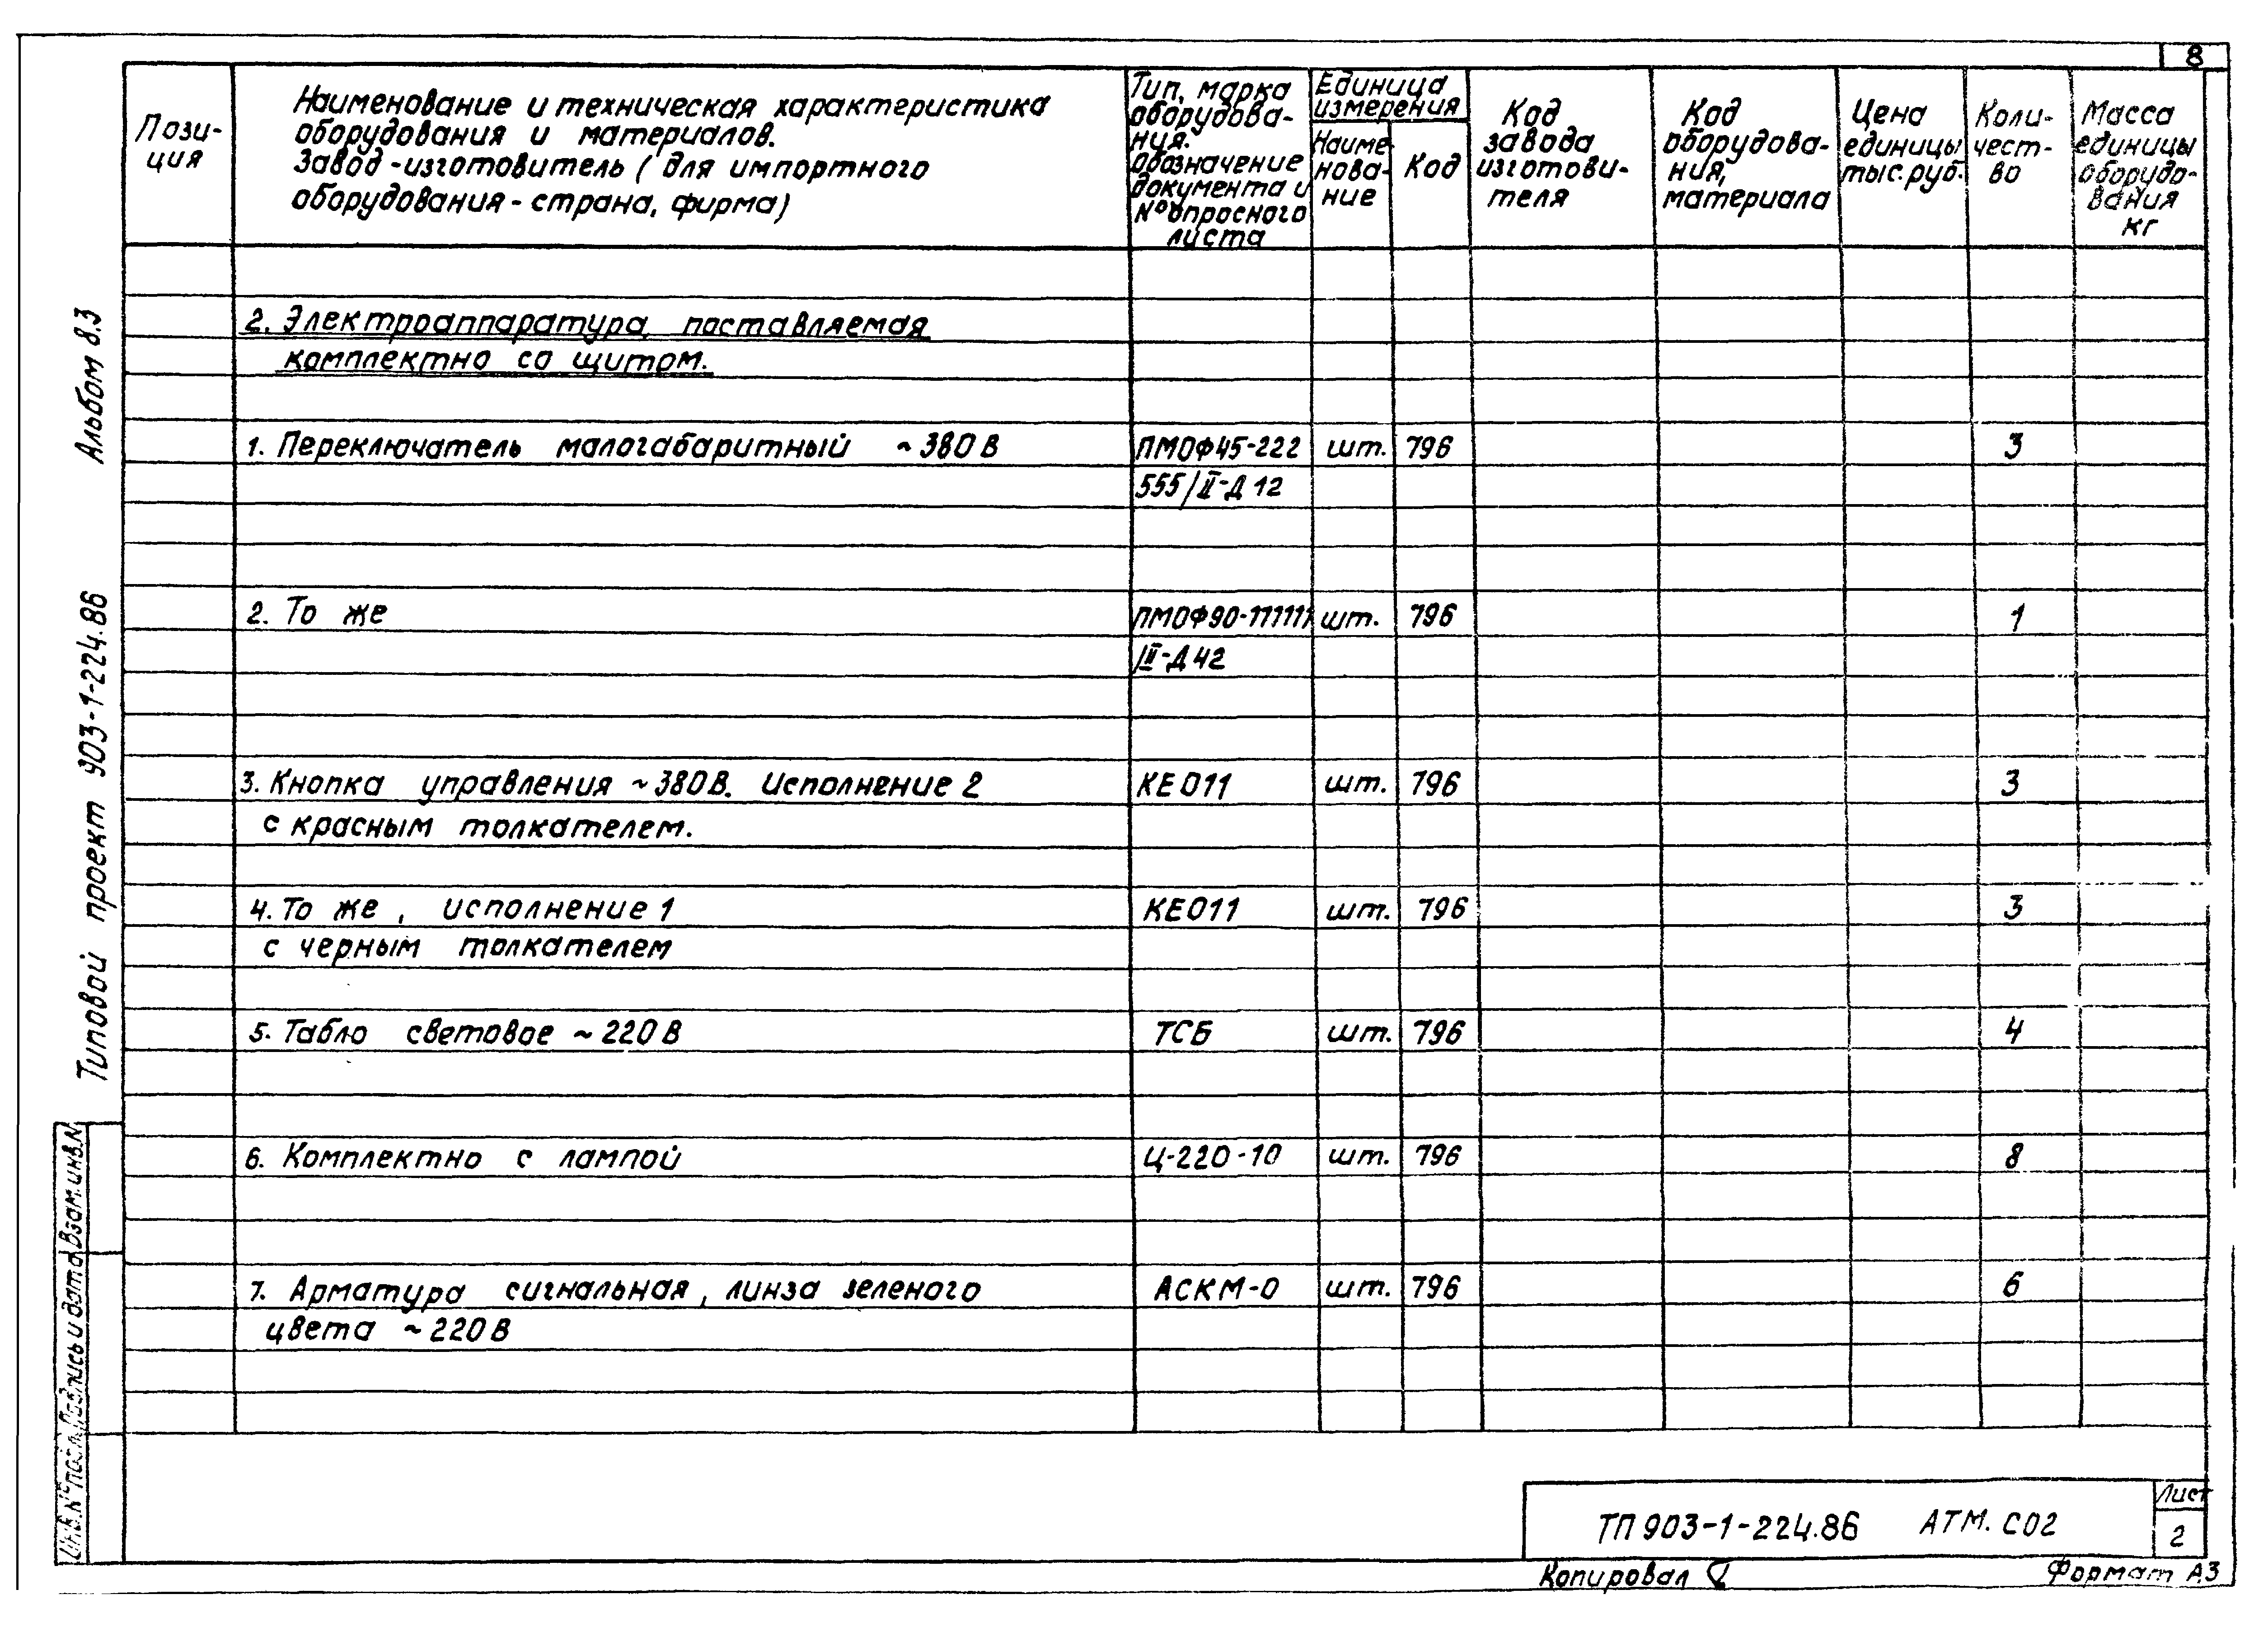 8
Пози-
ция
Наименование и техническая характеристика
оборудования и материалов.
Завод-изготовитель (для импортного
оборудования - страна, фирма)
Тип, марка
оборудова-
ния.
Обозначение
документа и
№ опросного
листа
Единица
измерения
Наиме-
нова-
ние
Код
Код
завода
изготови-
теля
Код
оборудова-
ния,
материала
Цена
единицы
тыс.руб.
Коли-
чест-
во
Масса
единицы
оборудо-
вания
кг
2. Электроаппаратура, поставляемая
комплектно со щитом.
1. Переключатель малогабаритный ~380 В ПМОФ45-222 шт. 796 3
555/II-Д12
2. То же ПМОФ90-111111 шт. 796 1
/II-Д42
3. Кнопка управления ~380В. Исполнение 2 КЕ011 шт. 796 3
с красным толкателем.
4. То же, исполнение 1 КЕ011 шт. 796 3
с черным толкателем
5. Табло световое ~220В ТСБ шт. 796 4
6. Комплектно с лампой Ц-220-10 шт. 796 8
7. Арматура сигнальная, линза зеленого АСКМ-О шт. 796 6
цвета ~220В
Альбом 8.3
Типовой проект 903-1-224.86
Взам.инв.№
Подпись и дата
Инв.№ подл.
ТП 903-1-224.86 АТМ. С02
Лист
2
Копировал
Формат А3